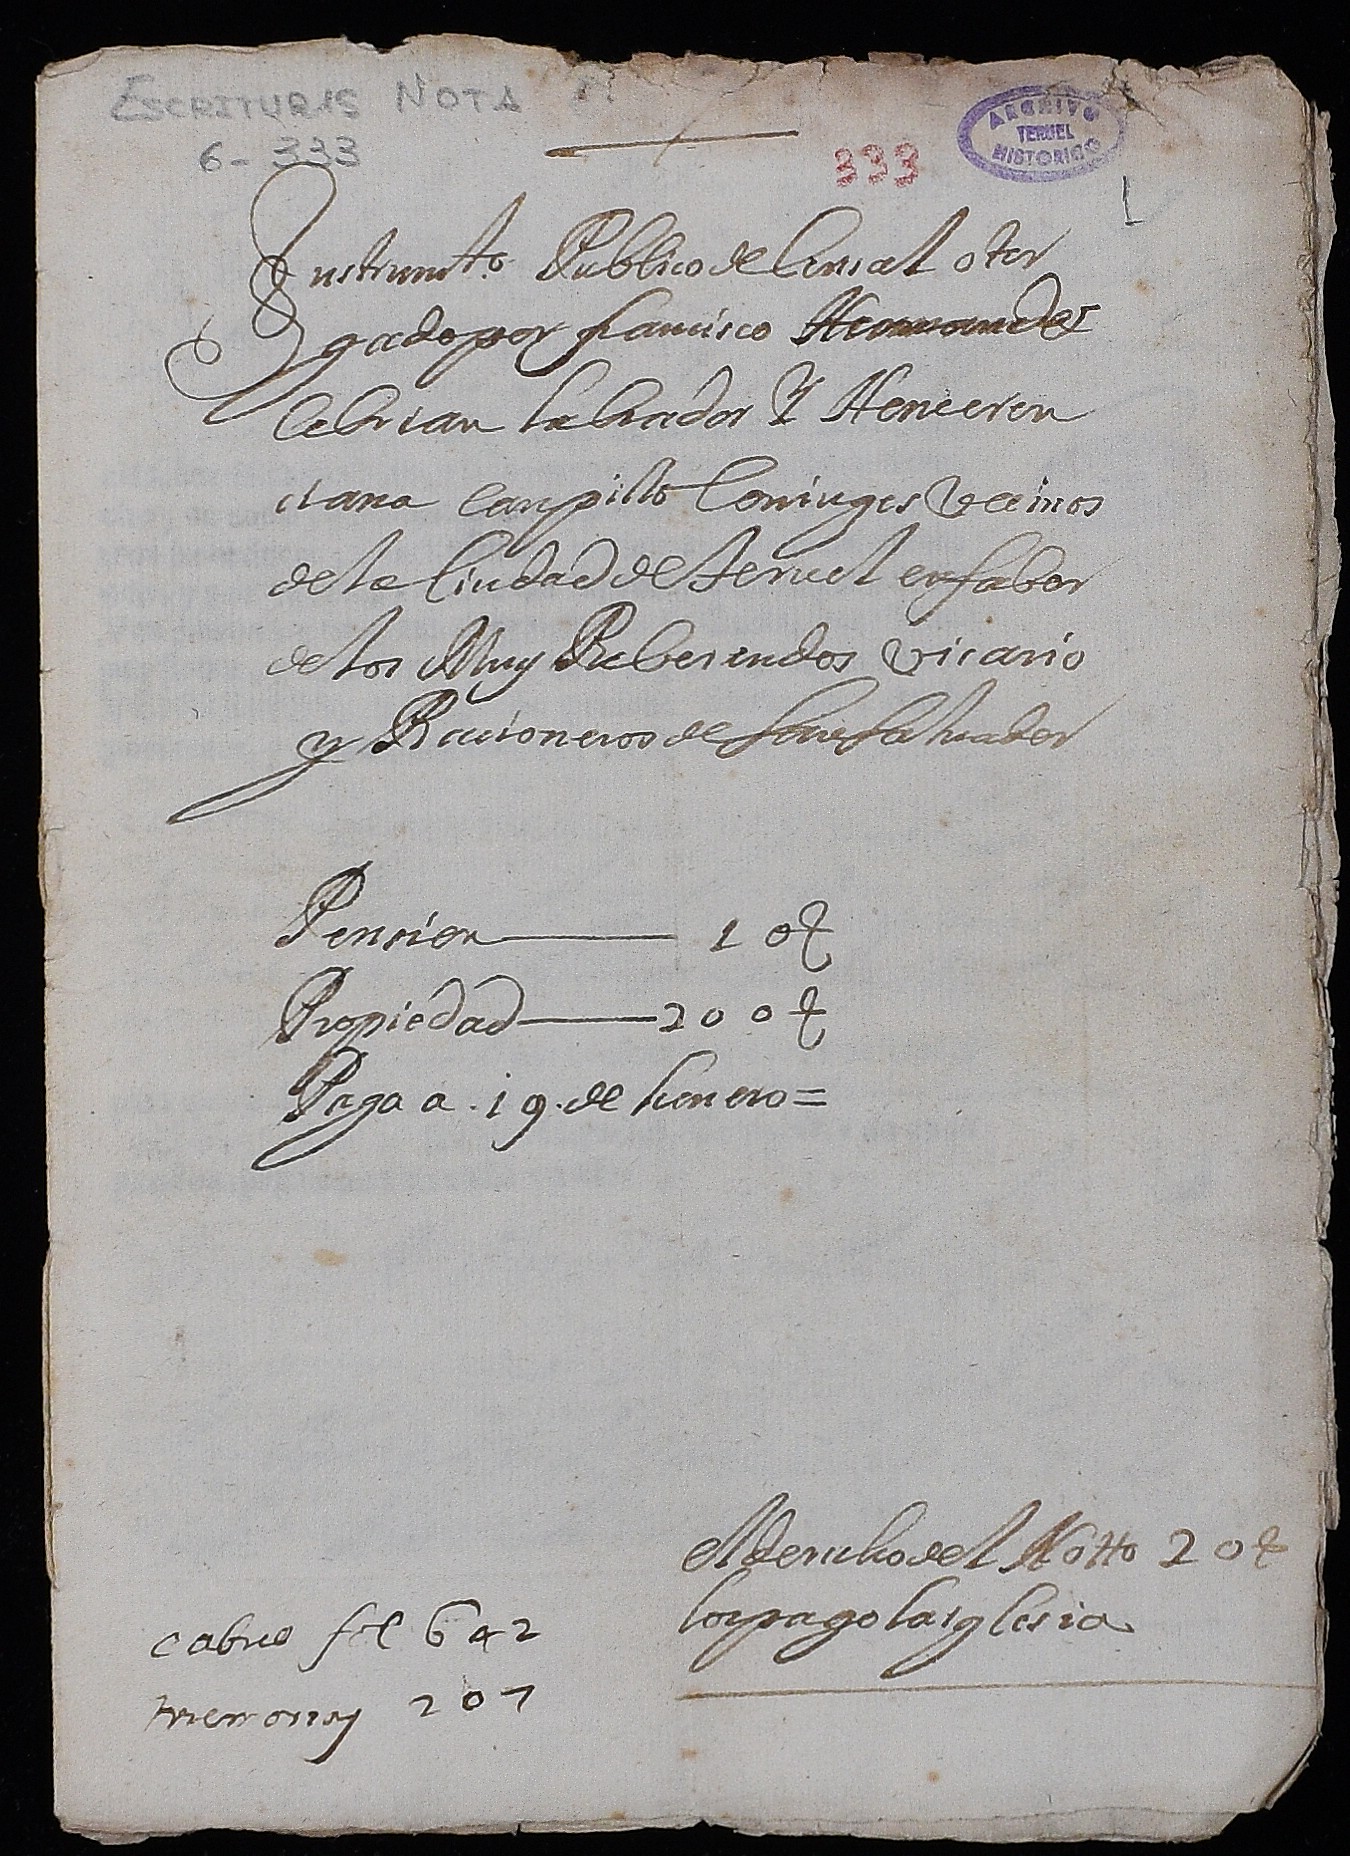 ESCRITURAS NOTA
6-333
333
ARCHIVO
TERUEL
HISTORICO
Instrumto Publico de Censal otor
gado por francisco Hernandez
Cebrian labrador Y Hemeren
ciana Campillo Coniuges Vecinos
de la Ciudad de teruel en fabor
de los Muy Reberendos Vicario
y Racioneros de san salvador
Pension 10 L
Propiedad 200 L
Paga a .19. de henero =
El derecho del Notto 20 L
los pago la iglesia
Cabreo fol 642
memorias 207